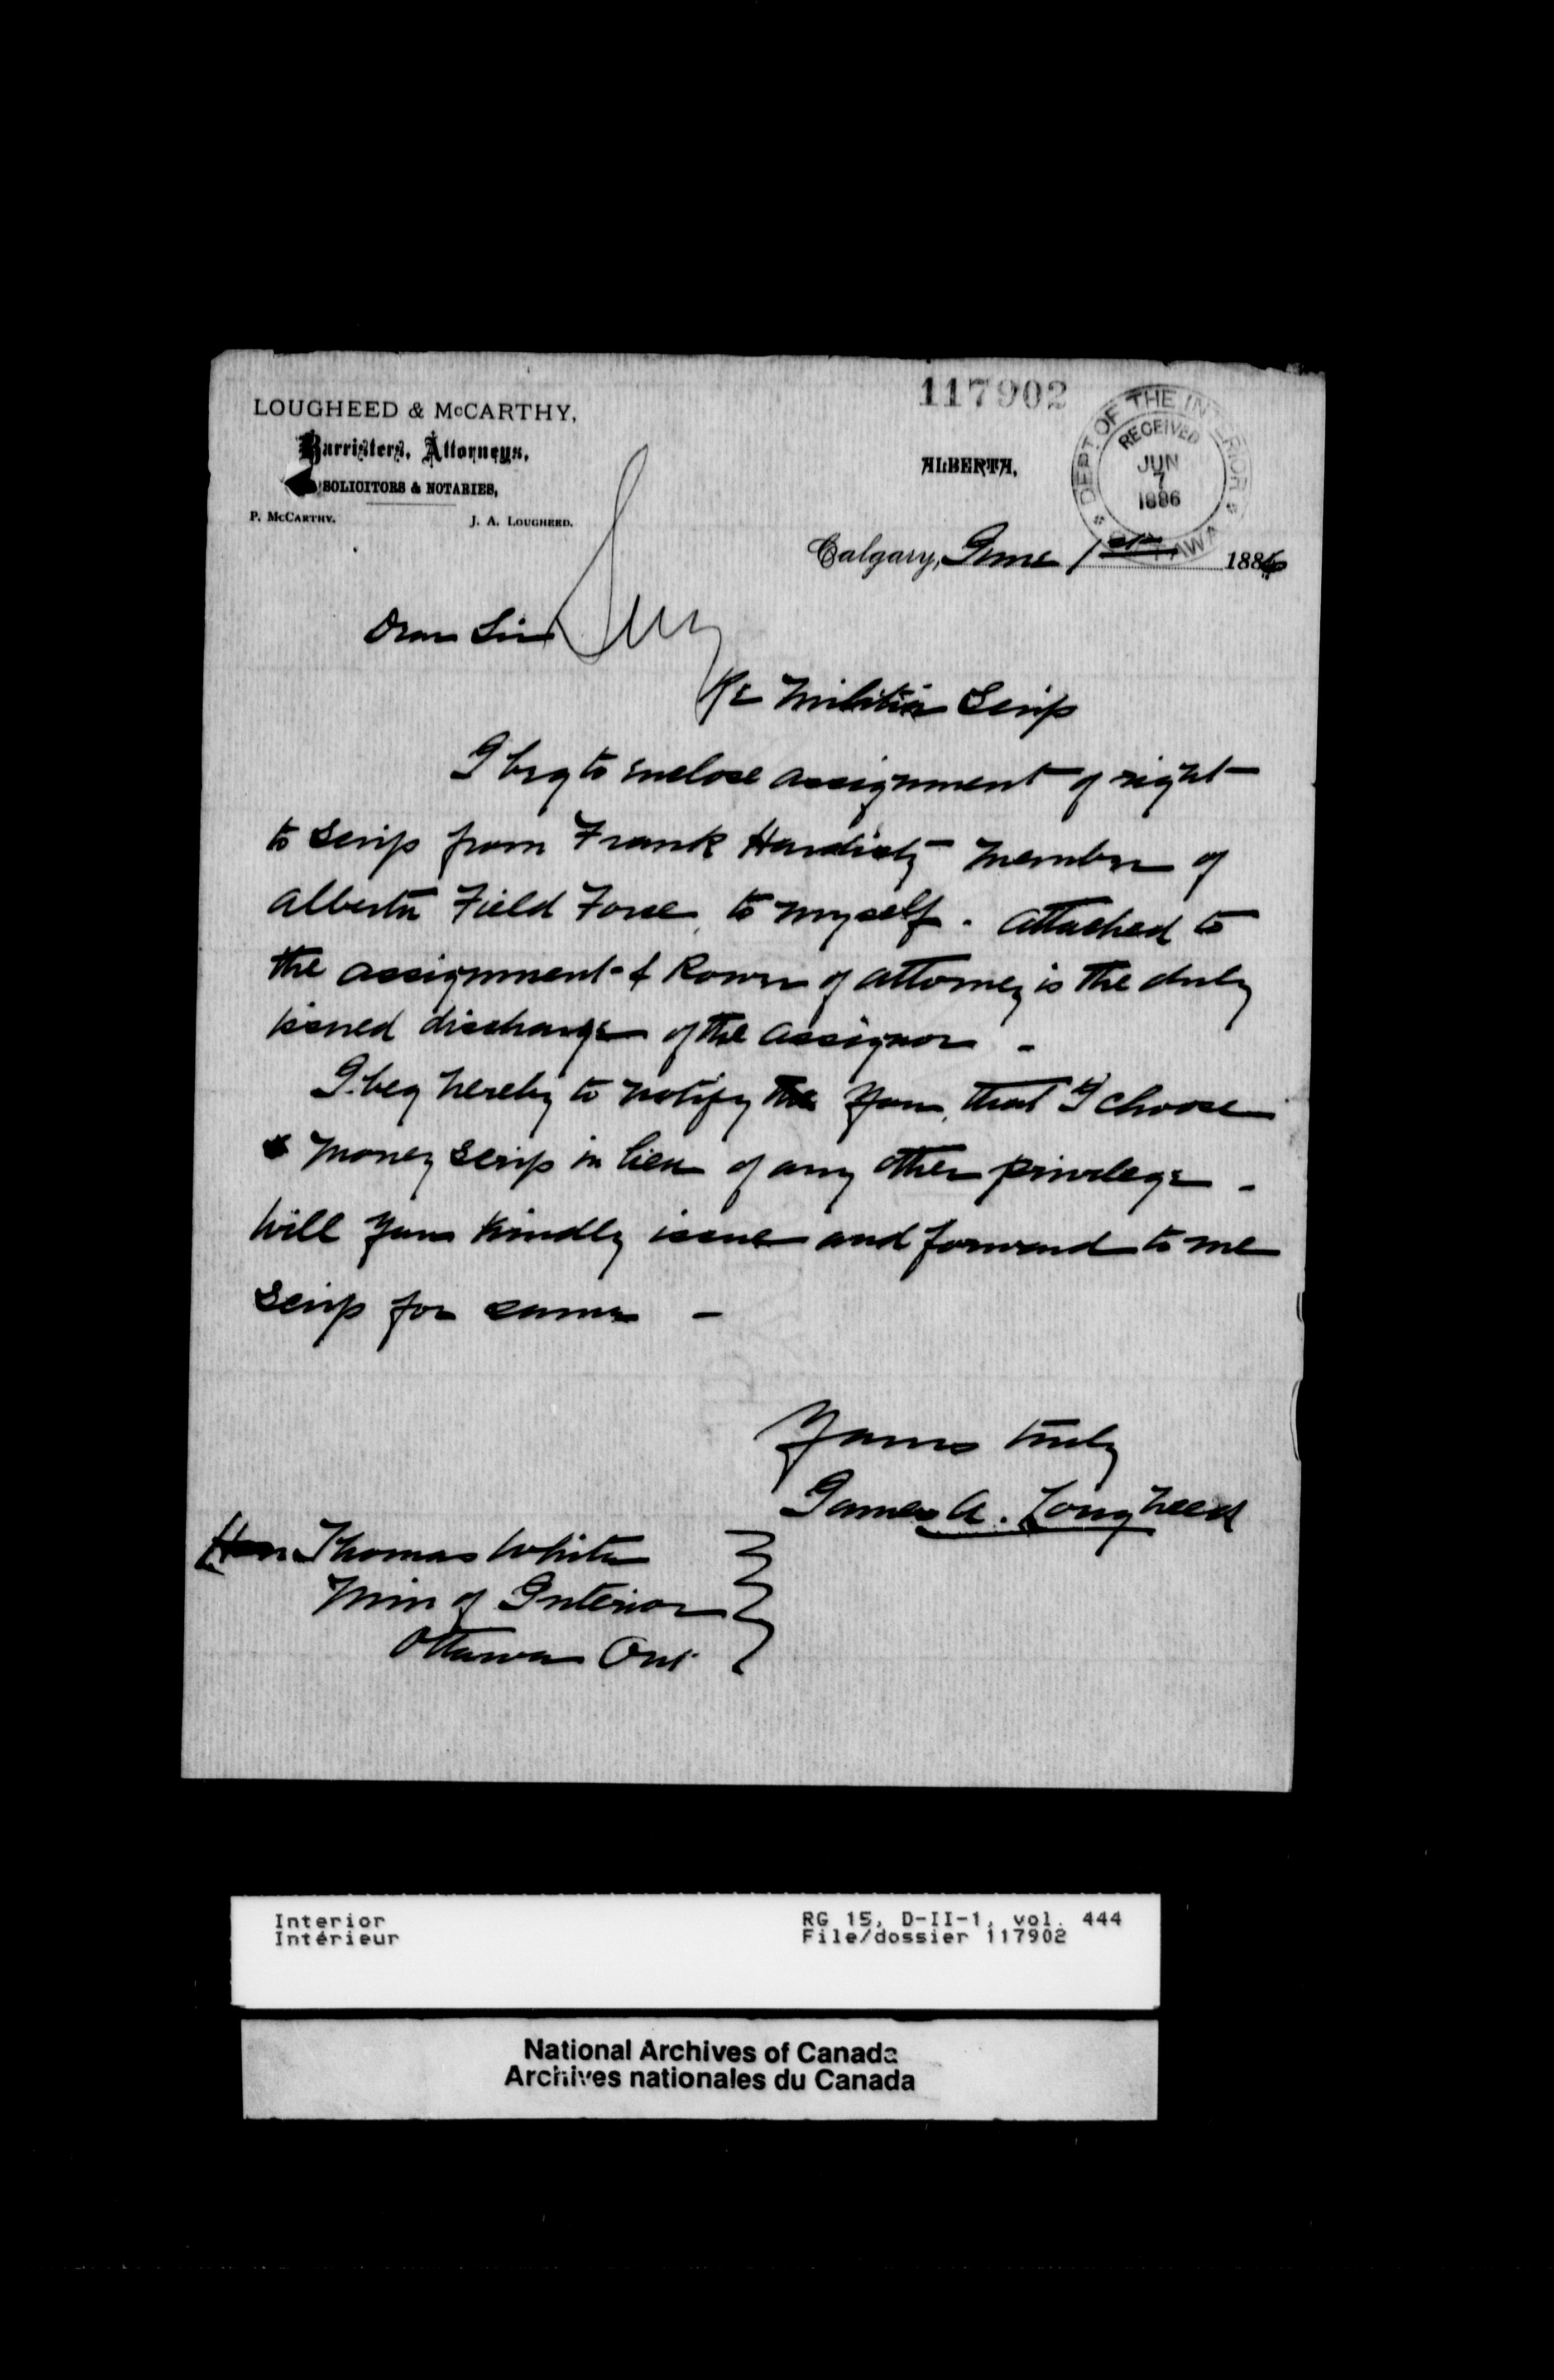 117902
LOUGHEED & McCARTHY,
Barristers, Attorneys,
SOLICITORS & NOTARIES,
P. McCARTHY. J. A. LOUGHEED.
ALBERTA,
DEPT OF THE INTERIOR
RECEIVED
JUN
7
1886
OTTAWA
Calgary, June 1st 1886
Dear Sir
Re Militia Scrip
I beg to enclose assignment of right
to scrip from Frank Hardisty member of
Alberta Field Force, to myself. Attached to
the assignment & Power of attorney is the duly
issued discharge of the assignor -
I beg hereby to notify the you, that I choose
money scrip in lieu of any other privilege -
Will you kindly issue and forward to me
scrip for same -
Yours truly
James A. Lougheed
Hon Thomas White
Min of Interior
Ottawa Ont
Interior
Intérieur
RG 15, D-II-1, vol. 444
File/dossier 117902
National Archives of Canada
Archives nationales du Canada